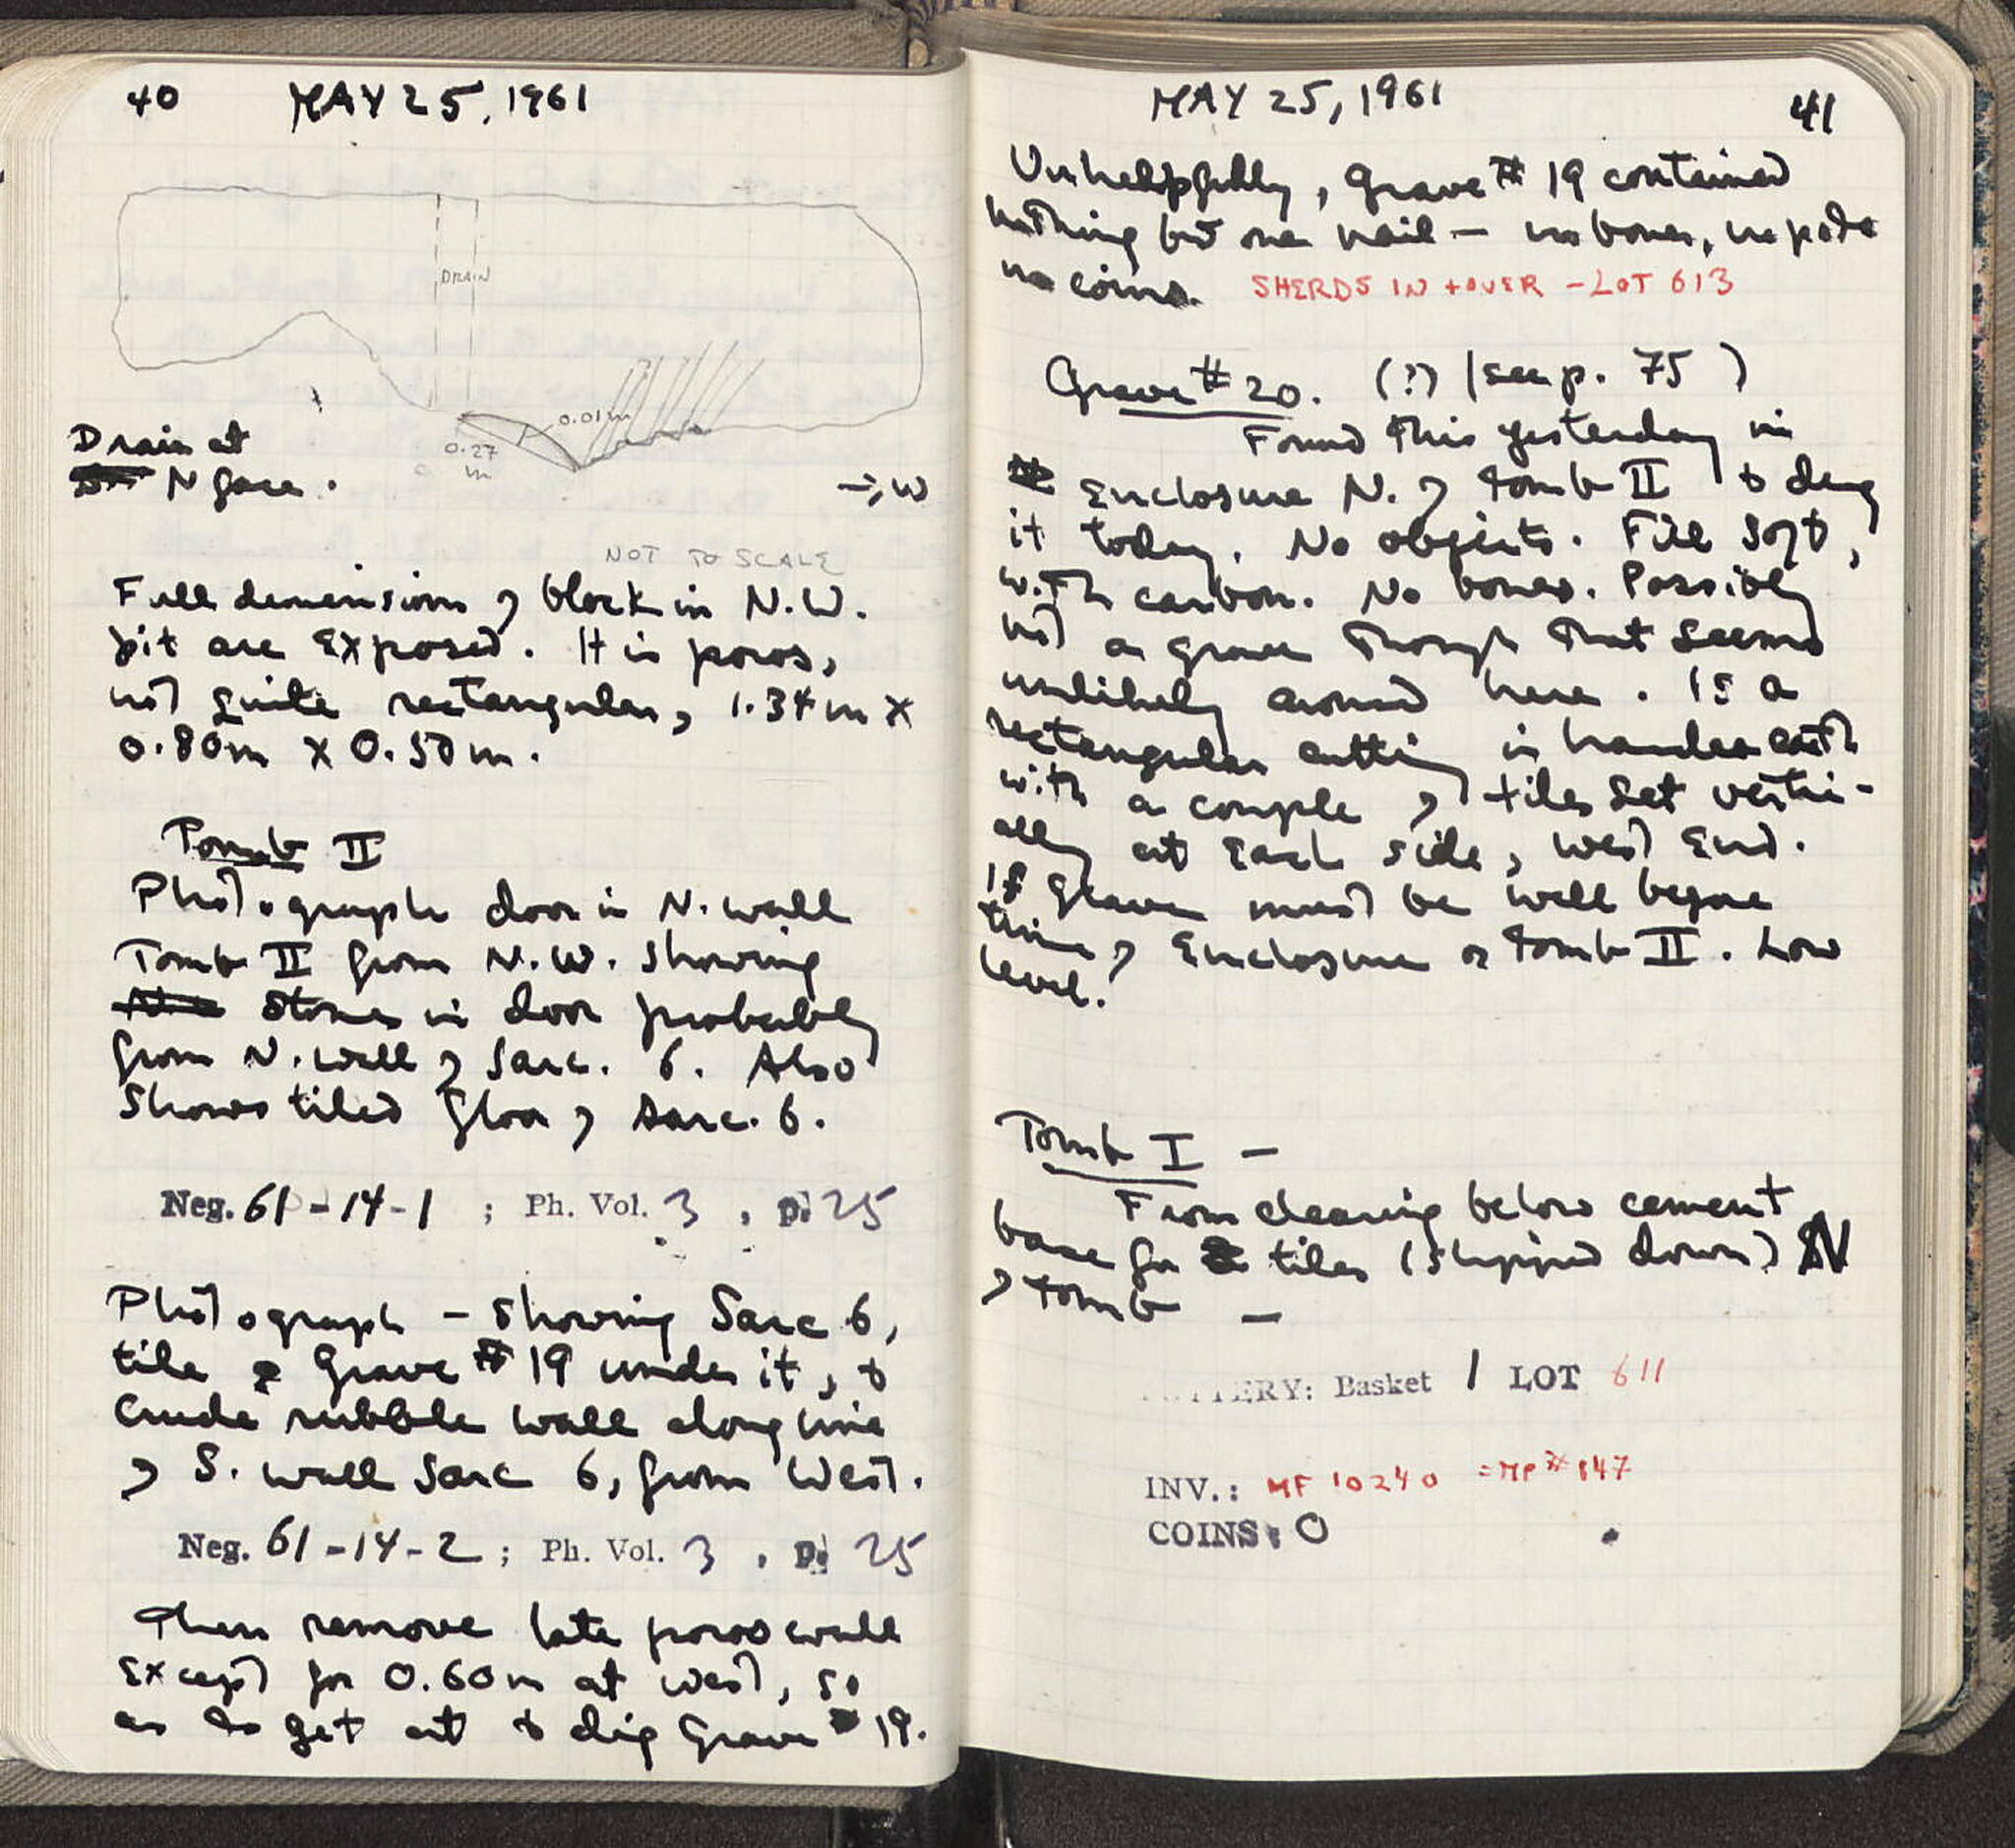 40 MAY 25, 1961
DRAIN
0.01m
0.27
m
Drain at
N face.
→ W
NOT TO SCALE
Full dimensions of block in N.W.
pit are exposed. It is poros,
not quite rectangular, 1.34m x
0.80m x 0.50m.
Tomb II
Photograph door in N. wall
Tomb II from N.W. showing
stones in door probably
from N. wall of Sarc. 6. Also
shows tiled floor of Sarc. 6.
Neg. 61-14-1 ; Ph. Vol. 3 , p. 25
Photograph - showing Sarc 6,
tile of Grave # 19 under it, &
crude rubble wall along line
of S. wall Sarc 6, from West.
Neg. 61-14-2 ; Ph. Vol. 3 , p. 25
Then remove late poros wall
except for 0.60m at west, so
as to get at & dig Grave # 19.
MAY 25, 1961 41
Unhelpfully, Grave # 19 contained
nothing but one nail - no bones, no pots
no coins. SHERDS IN + OVER - LOT 613
Grave # 20. (?) (see p. 75)
Found this yesterday in
enclosure N. of tomb II & dug
it today. No objects. Fill soft,
with carbon. No bones. Possibly
not a grave though that seems
unlikely around here. Is a
rectangular cutting in hard earth
with a couple of tiles set verti-
ally at each side, west end.
If grave must be well before
time of enclosure or tomb II. Low
level.
Tomb I -
From clearing below cement
base for tiles (slipped down) N
of tomb -
POTTERY: Basket 1 LOT 611
INV.: MF 10240 = MP # 847
COINS: 0